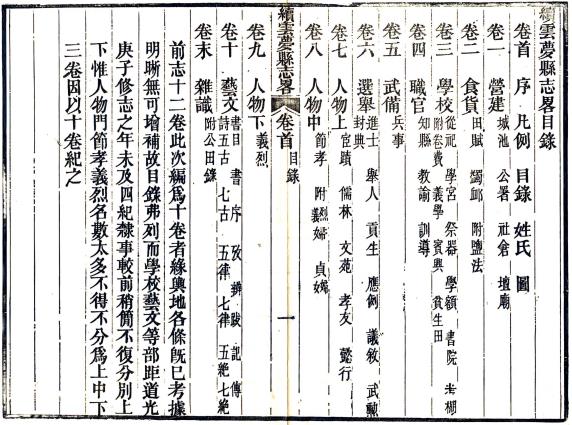 續雲夢縣志畧目錄
卷首 序 凡例 目錄 姓氏 圖
卷一 營建 城池 公署 社倉 壇廟
卷二 食貨 田賦 蠲卹 附鹽法
卷三 學校 從祀 學宮 祭器 學額 書院 考棚
附卷費 義學 賓興 貧生田
卷四 職官 知縣 教諭 訓導
卷五 武備 兵事
卷六 選舉 進士 舉人 貢生 應例 議敘 武勳
封典
卷七 人物上 宦蹟 儒林 文苑 孝友 懿行
續雲夢縣志畧 卷首 目錄 一
卷八 人物中 節孝 附烈婦 貞女
義婦
卷九 人物下 義烈
卷十 藝文 書目 書 序 攷 辨 跋 記 傳
詩五古 七古 五律 七律 五絶 七絶
卷末 雜識 附公田錄
前志十二卷此次編爲十卷者緣輿地各條旣已考據
明晰無可增補故目錄弗列而學校藝文等部距道光
庚子修志之年未及四紀隸事較前稍簡不復分別上
下惟人物門節孝義烈名數太多不得不分爲上中下
三卷因以十卷紀之